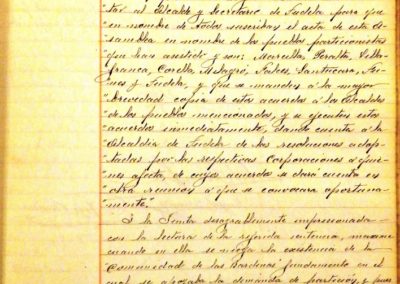 tar al Alcalde y Secretario de Tudela para que
"en nombre de todos suscriban el acta de esta A-
"samblea en nombre de los pueblos particionistas
"que han asistido y son; Marcilla, Peralta, Villa-
"franca, Corella, Milagro, Falces, Santacara, Fu-
"nes y Tudela, y que se mande a la mayor
"brevedad copia de estos acuerdos á los Alcaldes
"de los pueblos mencionados, y se ejecuten estos
"acuerdos inmediatamente, dando cuenta á la
"Alcaldia de Tudela de las resoluciones adop-
"tadas por las respectivas Corporaciones á quie-
"nes afecta, de cuyos acuerdos se dará cuenta en
"otra reunion á que se convocara oportuna-
"mente."
Y la Junta desagradablemente impresionada
con la lectura de la referida sentencia, maxime
cuando en ella se niega la existencia de la
"Comunidad de las Bardenas" fundamento en el
cual se apoyaba la demanda de particion, y pues